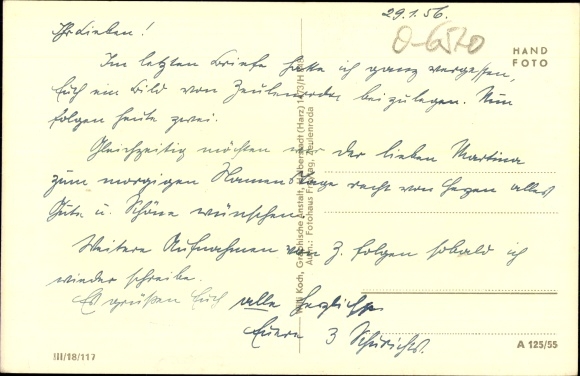 29.1.56.
O-6570
HAND
FOTO
Ihr Lieben!
Im letzten Briefe hatte ich ganz vergessen,
Euch ein Bild von Zeulenroda beizulegen. Nun
folgen heute zwei.
Gleichzeitig möchten wir der lieben Martina
zum morgigen Namenstage recht von Herzen alles
Gute u. Schöne wünschen.
Weitere Aufnahmen von Z. folgen sobald ich
wieder schreibe.
Es grüßen Euch alle herzlichst
Eure 3
Willi Koch, Graphische Anstalt, Halberstadt (Harz)
Aufn.: Fotohaus Zeulenroda
III/18/117
A 125/55